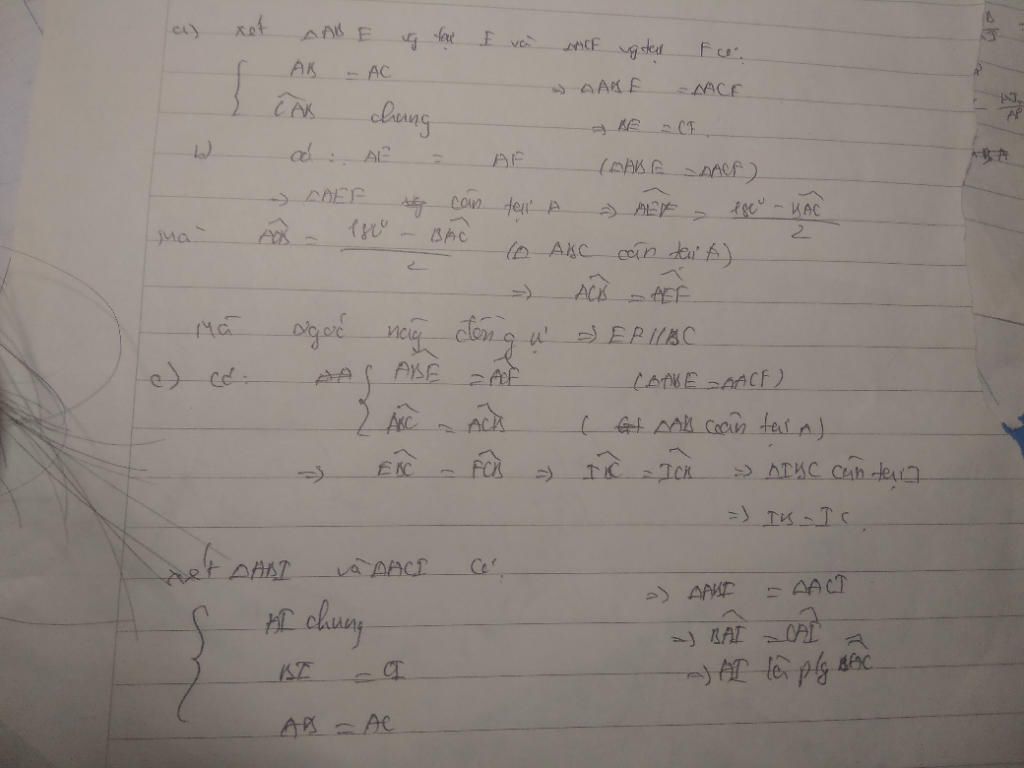 a) xét △ABE vg tại E và △ACF vg tại F có:
AB = AC
⇒ △ABE = △ACF
CAB chung
⇒ BE = CF.
b) có: AE = AF (△ABE = △ACF)
⇒ △AEF cân tại A ⇒ AEF = 180° - BAC / 2
Mà ACB = 180° - BAC / 2 (△ ABC cân tại A)
⇒ ACB = AEF
Mà góc này đồng vị ⇒ EF // BC
c) Có: ABE = ACF (△ABE = △ACF)
ABC = ACB ( △AB cân tại A)
⇒ EBC = FCB ⇒ IBC = ICB ⇒ △IBC cân tại I
⇒ IB = IC.
xét △ABI và △ACI có:
⇒ △ABI = △ACI
AI chung
⇒ BAI = CAI
BI = CI
⇒ AI là p/g BAC
AB = AC